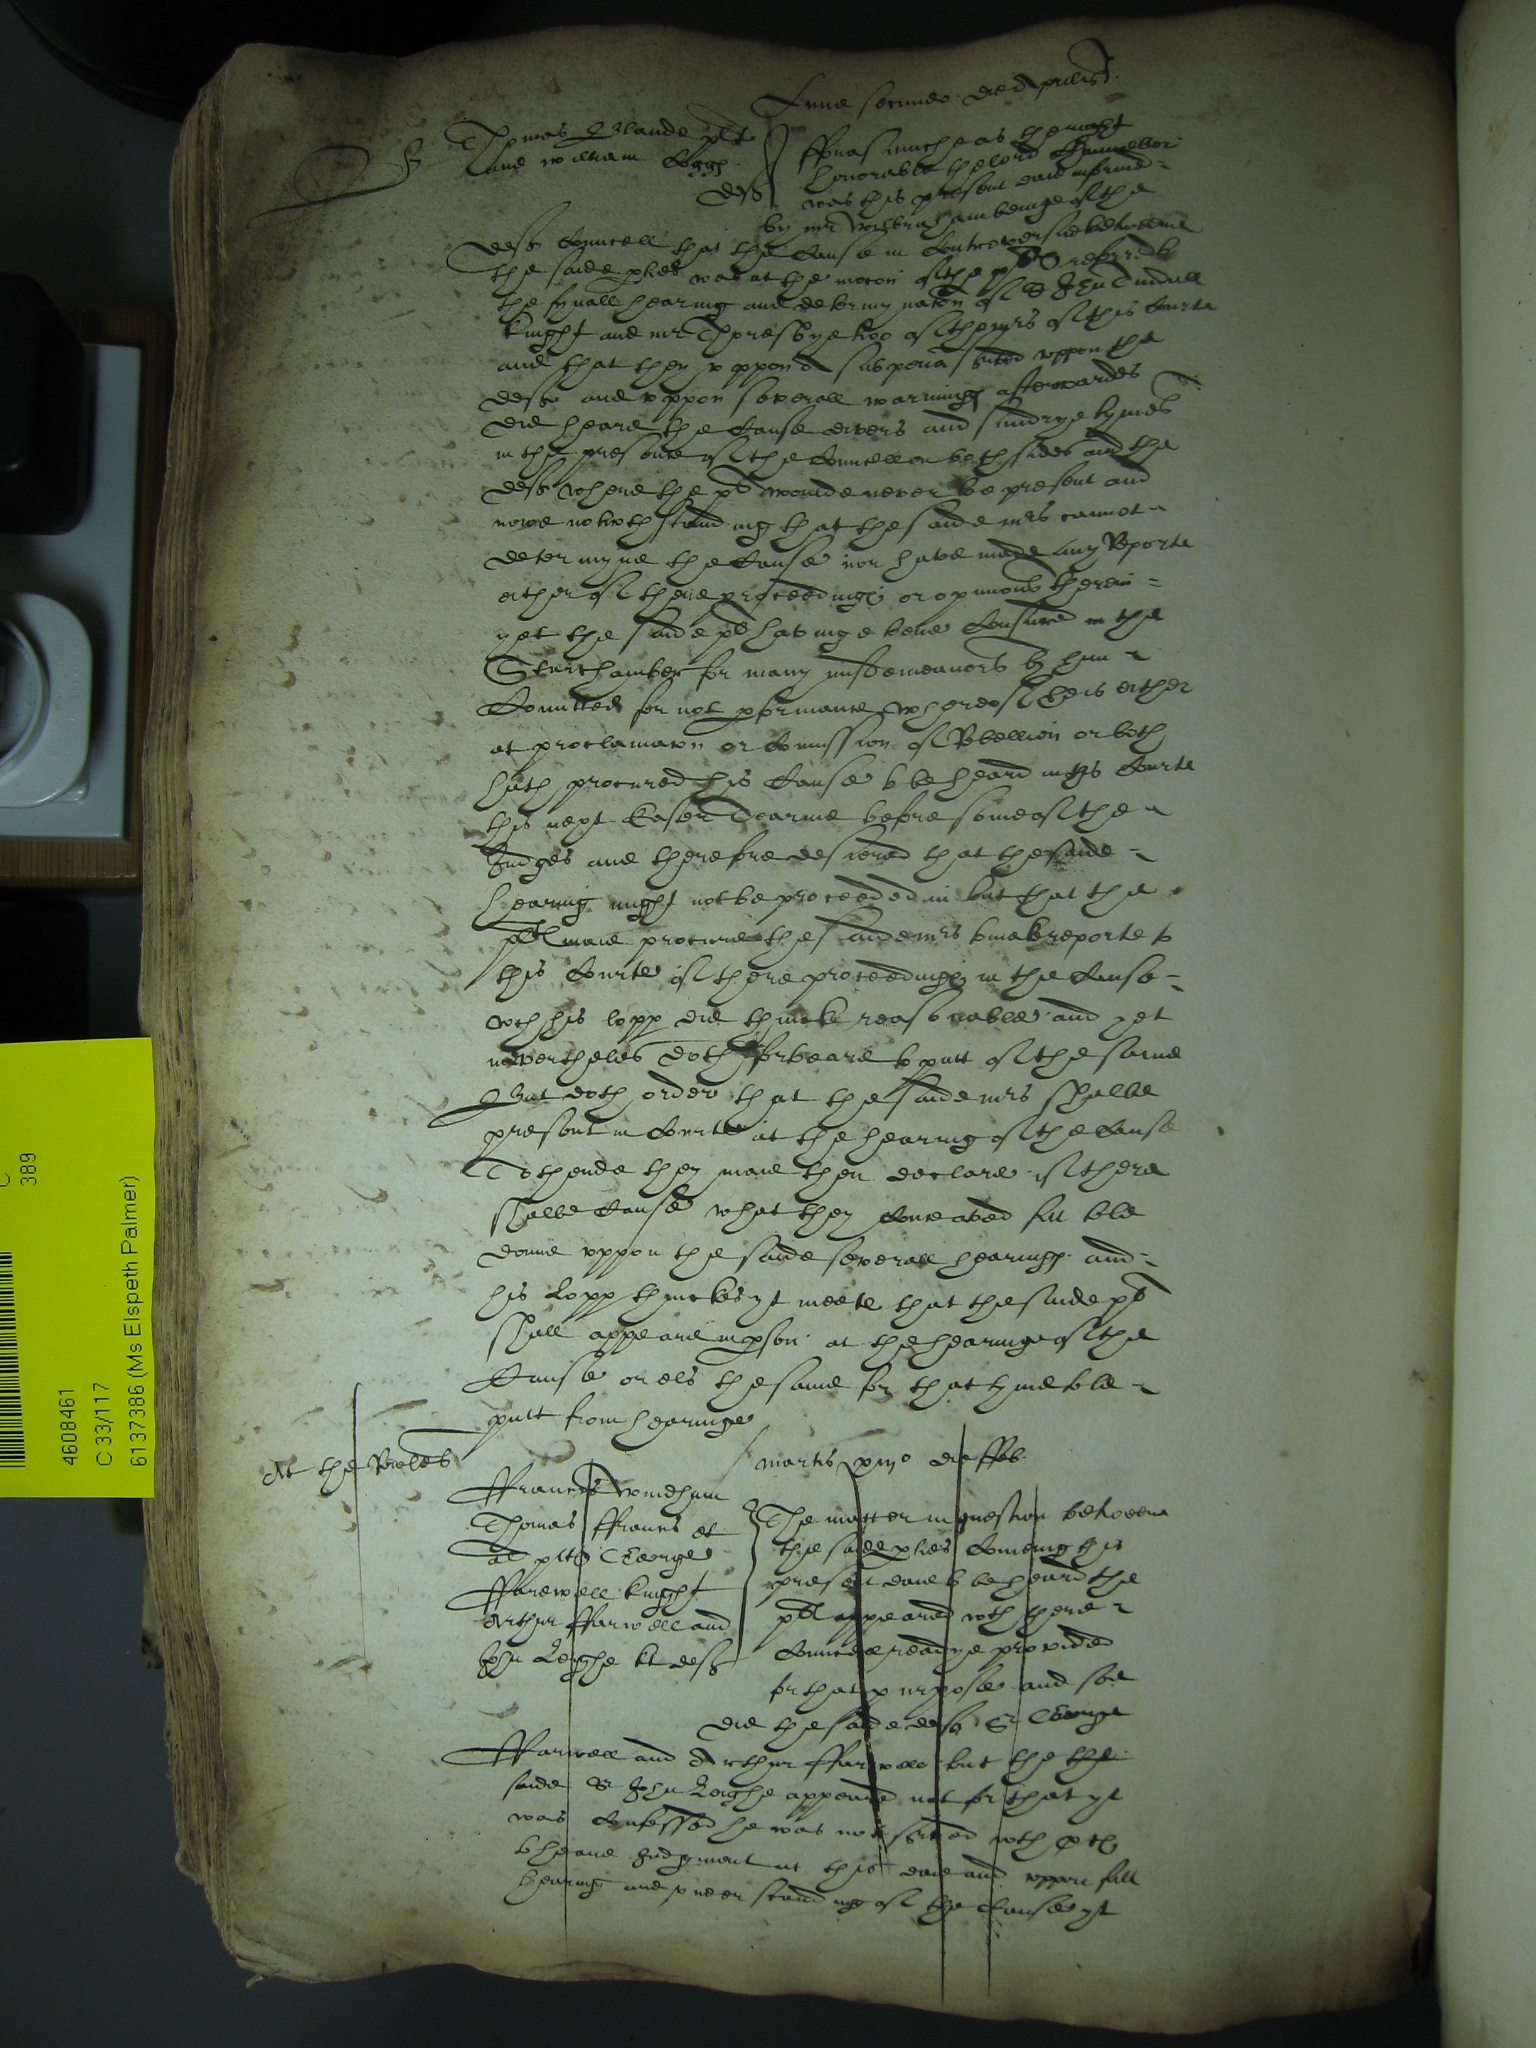 Lune secundo die Aprilis
Thomas Blande plt
and William Cogges
deft
Fforasmuche as the right
honorable the lord Chauncellor
was this present daie informed
by mr Wilbraham beinge of the
deftes Councell that the Cause in Controversie betweene
the saide pties was at the mocon of the plt referred to
the fynall hearing and determynacon of Sr John Tindall
knight and mr Thoresbye two of the mrs of this Courte
and that they uppon a subpena served uppon the
deft and uppon severall warnings afterwardes
did heare the Cause divers and sundrye tymes
in the presence of the Councell on bothe sides and the
deft where the plt woulde never be present and
nowe notwthstanding that the saide mrs cannot
determyne the Cause nor have made any Reporte
either of there proceedings or opinions therein
yet the saide plt havinge bene Censured in the
Starrchamber for many misdemeanors by him
Comitted for not pformance whereof he is either
at proclamacon or Comission of Rebellion or both
hath procured his Cause to be heard in this Courte
this next Easter Tearme before some of the
Judges and therefore desiered that the saide
hearing might not be proceeded in but that the
plt maie procure the saide mrs to make reporte to
this Courte of there proceedings in the Cause
wch his lopp did thincke reasonable and yet
nevertheles doth forbeare to putt of the same
But doth order that the saide mrs shalbe
present in Courte at the hearing of the Cause
To thende they maie then declare if there
shalbe Cause what they Conceaved fitt to be
donne uppon the saide severall hearings and
his Lopp thinckes yt meete that the saide plt
shall appeare in pson at the hearinge of the
Cause or els the same for that tyme to be
putt from hearinge
At the Rolles
Martis xiijo die Ffeb
Ffrancis Windham
Thomas Ffraunces et
al plts George
Ffarewell knight
Arthur Ffarwell and
John Leighe kt defts
The matter in question betweene
the saide pties Cominge this
present daie to be heard the
plt appeared wth there
Councell readye provided
for that purpose and soe
did the saide deftes Sr George
Ffarwell and Arthur Ffarwell but the the
saide Sr John Leighe appeared not for that yt
was Confessed he was not served wth pces
to heare Judgment at this daie and uppon full
hearing and understanding of the Cause yt
C
389
4608461
C 33/117
6137386 (Ms Elspeth Palmer)